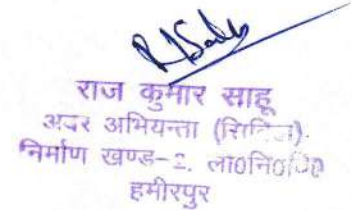 राज कुमार साहू
अवर अभियन्ता (सिविल)
निर्माण खण्ड-2, लो0नि0वि0
हमीरपुर